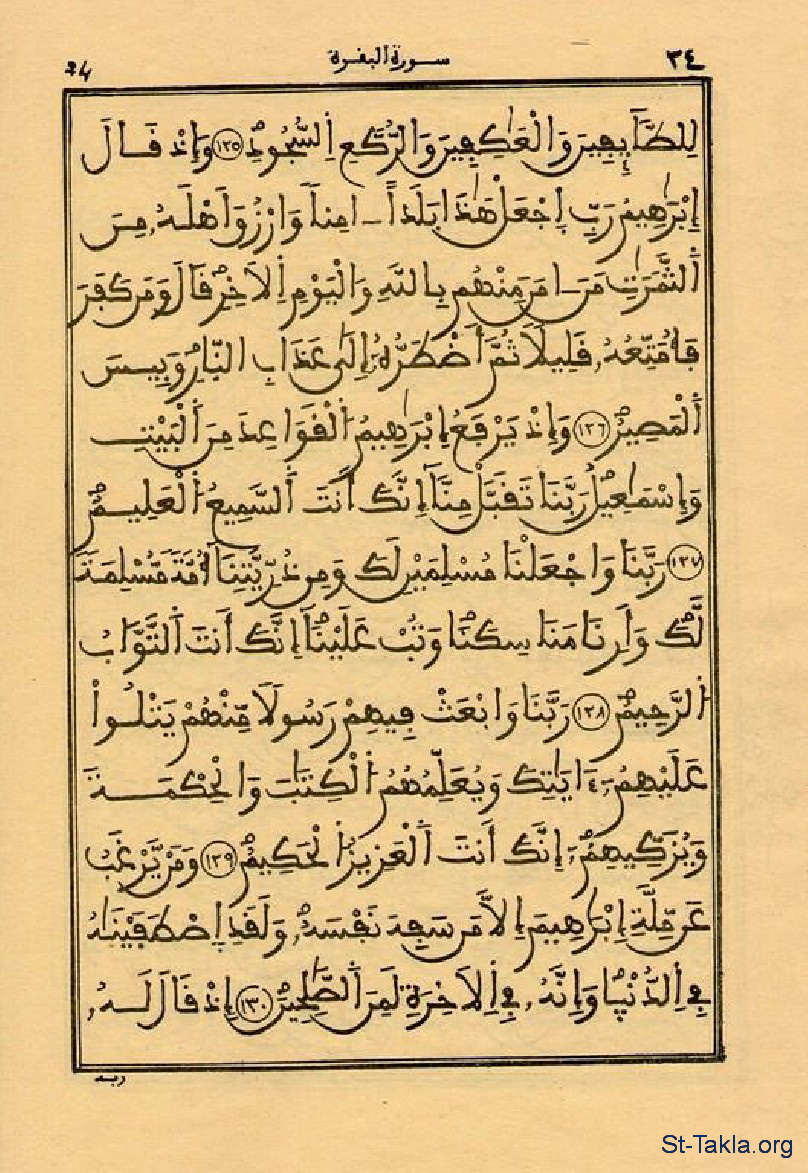 ٣٤ سورة البقرة 34
لِلطَّآئِفِينَ وَالْعَٰكِفِينَ وَالرُّكَّعِ اِ۬لسُّجُودِ ١٢٥ وَإِذْ قَالَ
إِبْرَٰهِيمُ رَبِّ اِجْعَلْ هَٰذَا بَلَداً ـ امِناً وَارْزُقَ اَهْلَهُۥ مِنَ
اَ۬لثَّمَرَٰتِ مَنَ ـ امَنَ مِنْهُم بِاللَّهِ وَالْيَوْمِ اِ۬لَاخِرِ قَالَ وَمَن كَفَرَ
فَأُمَتِّعُهُۥ قَلِيلاً ثُمَّ أَضْطَرُّهُۥ إِلَىٰ عَذَابِ اِ۬لنّ۪ارِ وَبِيسَ
اَ۬لْمَصِيرُ ١٢٦ وَإِذْ يَرْفَعُ إِبْرَٰهِيمُ اُ۬لْقَوَاعِدَ مِنَ اَ۬لْبَيْتِ
وَإِسْمَٰعِيلُ رَبَّنَا تَقَبَّلْ مِنَّآ إِنَّكَ أَنتَ اَ۬لسَّمِيعُ اُ۬لْعَلِيمُ
١٢٧ رَبَّنَا وَاجْعَلْنَا مُسْلِمَيْنِ لَكَ وَمِن ذُرِّيَّتِنَآ أُمَّةً مُّسْلِمَةً
لَّكَ وَأَرِنَا مَنَاسِكَنَا وَتُبْ عَلَيْنَآ إِنَّكَ أَنتَ اَ۬لتَّوَّابُ
اُ۬لرَّحِيمُ ١٢٨ رَبَّنَا وَابْعَثْ فِيهِمْ رَسُولاً مِّنْهُمْ يَتْلُواْ
عَلَيْهِمُۥٓ ءَايَٰتِكَ وَيُعَلِّمُهُمُ اُ۬لْكِتَٰبَ وَالْحِكْمَةَ
وَيُزَكِّيهِمُۥٓ إِنَّكَ أَنتَ اَ۬لْعَزِيزُ اُ۬لْحَكِيمُ ١٢٩ وَمَنْ يَّرْغَبُ
عَن مِّلَّةِ إِبْرَٰهِيمَ إِلاَّ مَن سَفِهَ نَفْسَهُۥ وَلَقَدِ اِ۪صْطَفَيْنَٰهُ
فِي اِ۬لدُّنْي۪ا وَإِنَّهُۥ فِي اِ۬لَاخِرَةِ لَمِنَ اَ۬لصَّٰلِحِينَ ١٣٠ إِذْ قَالَ لَهُۥ
ربه
St-Takla.org